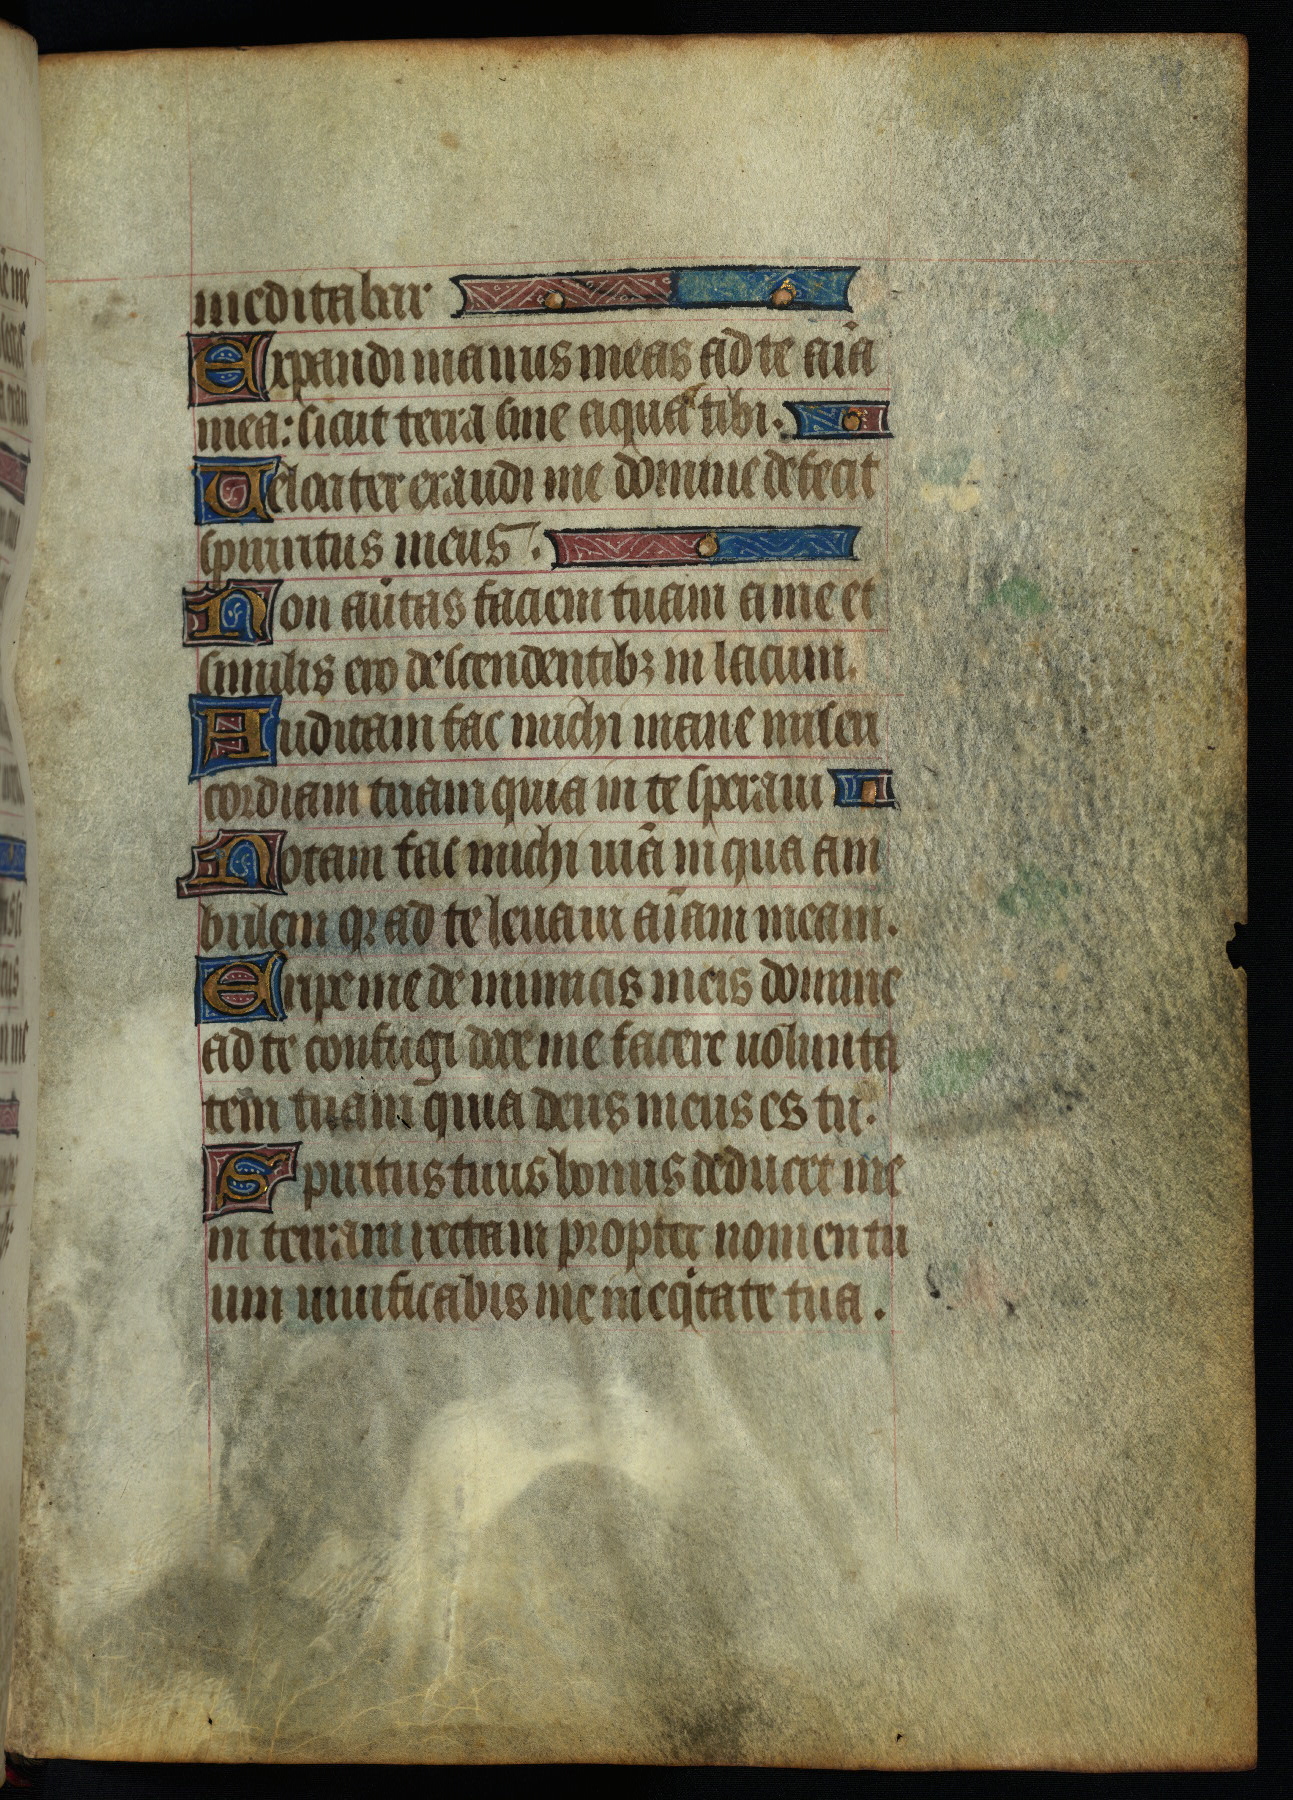 meditabar
Expandi manus meas ad te aĩa
mea: sicut terra sine aqua tibi.
Uelociter exaudi me domine defecit
spiritus meus.
Non aũtas faciem tuam a me et
similis ero descendentibꝫ in lacum.
Auditam fac michi mane miseri
cordiam tuam quia in te speraui
Notam fac michi uiã in qua am
bulem qꝛ ad te leuaui aĩam meam.
Eripe me de inimicis meis domine
ad te confugi doce me facere uolunta
tem tuam quia deus meus es tu.
Spiritus tuus bonus deducet me
in terram rectam propter nomen tu
um uiuificabis me in eqͥtate tua.